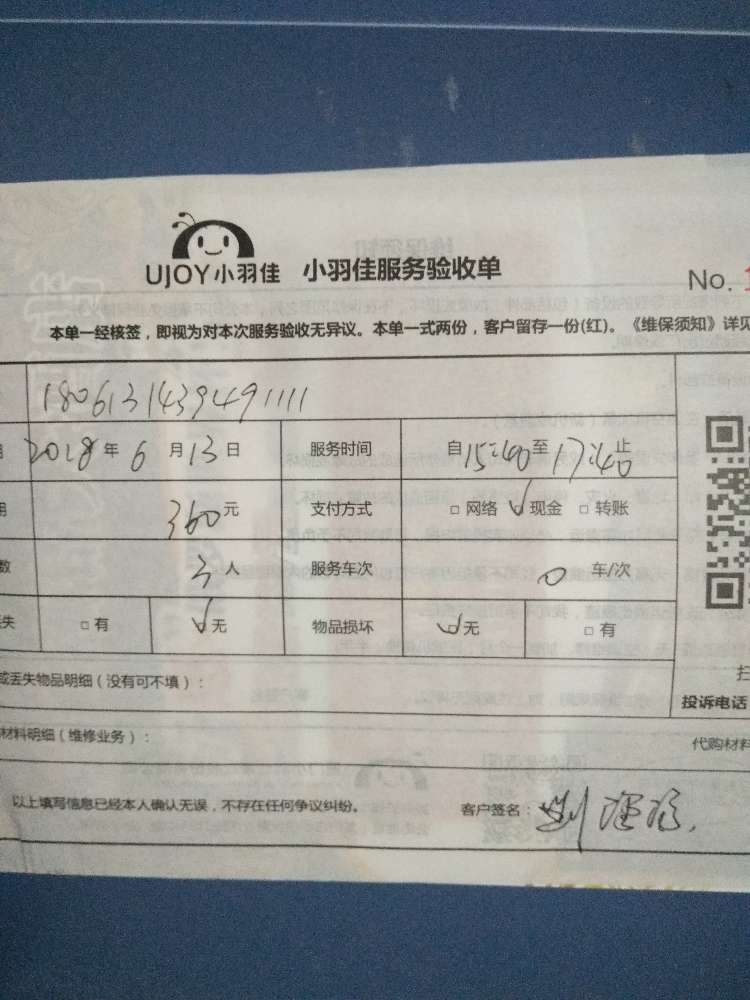 UJOY小羽佳 小羽佳服务验收单
No.
本单一经核签，即视为对本次服务验收无异议。本单一式两份，客户留存一份(红)。《维保须知》详见
18061314394491111
2018年6月13日 服务时间 自15:40至17:40止
360元 支付方式 □网络 ☑现金 □转账
数 3人 服务车次 0车/次
失 □有 ☑无 物品损坏 ☑无 □有
或丢失物品明细（没有可不填）：
投诉电话
材料明细（维修业务）： 代购材料
以上填写信息已经本人确认无误，不存在任何争议纠纷。 客户签名：